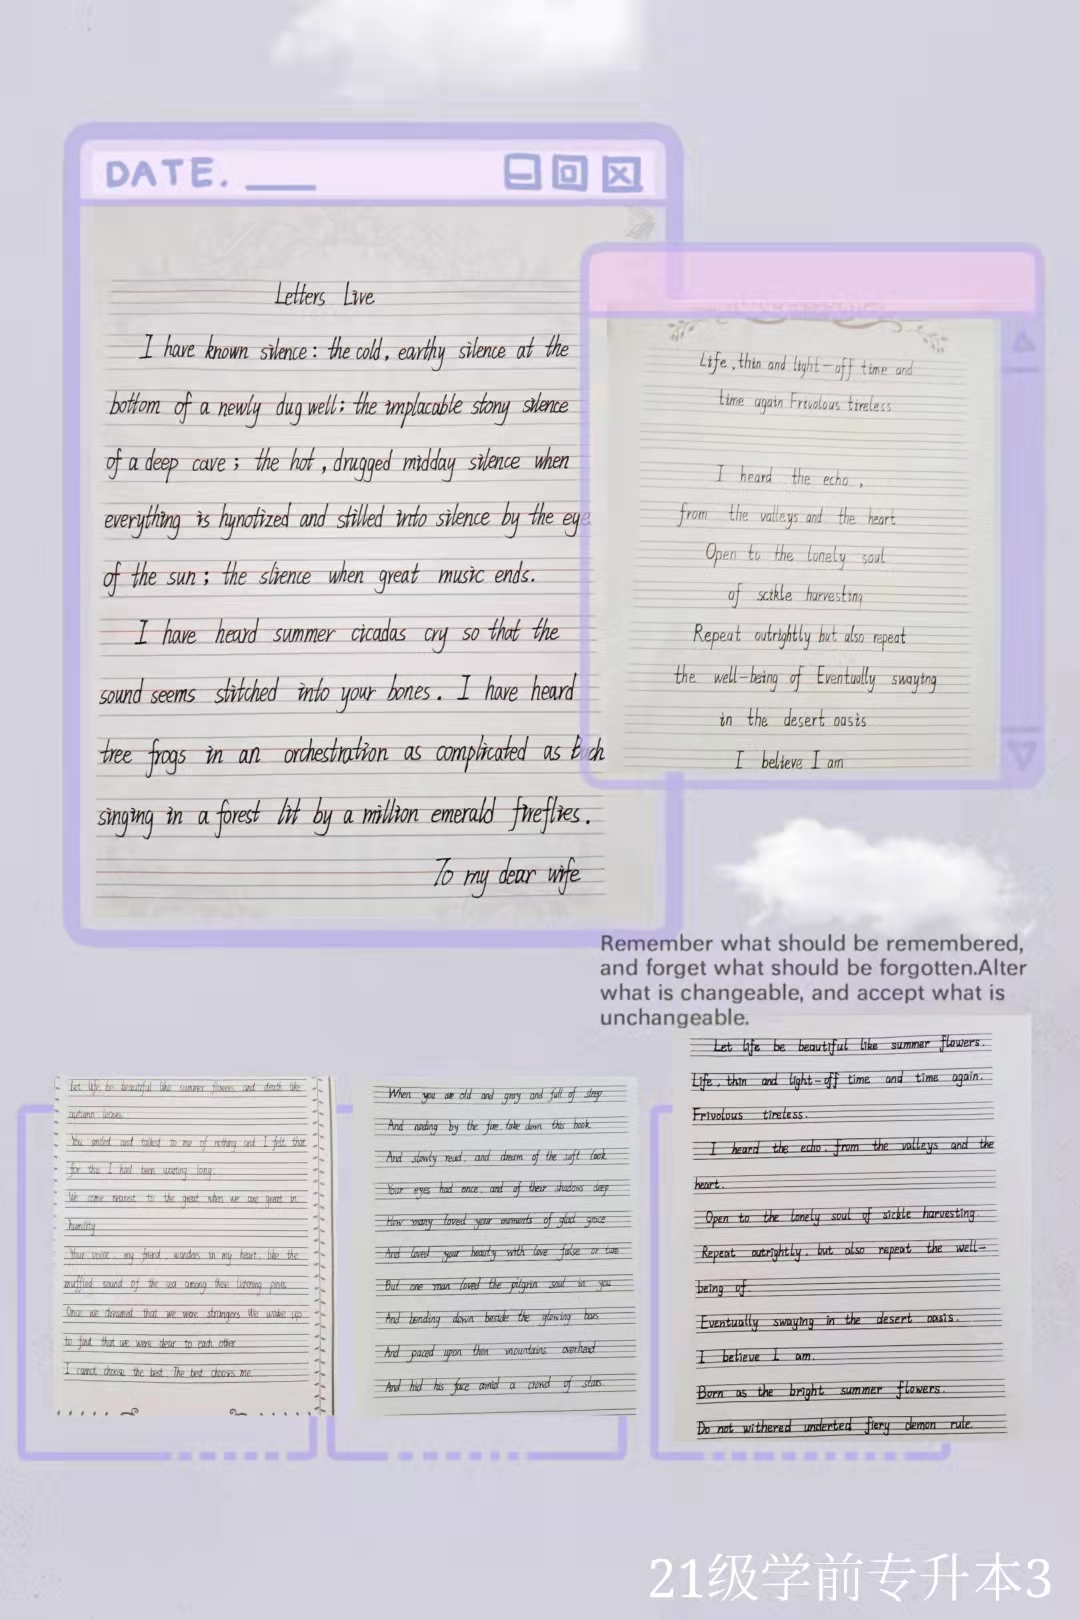 DATE.
Letters Live
I have known silence: the cold, earthy silence at the
bottom of a newly dug well; the implacable stony silence
of a deep cave; the hot, drugged midday silence when
everything is hynotized and stilled into silence by the eye
of the sun; the slience when great music ends.
I have heard summer cicadas cry so that the
sound seems stitched into your bones. I have heard
tree frogs in an orchestration as complicated as Bach
singing in a forest lit by a million emerald fireflies.
To my dear wife
Life, thin and light-off time and
time again Frivolous tireless
I heard the echo,
from the valleys and the heart
Open to the lonely soul
of scikle harvesting
Repeat outrightly but also repeat
the well-being of Eventually swaying
in the desert oasis
I believe I am
Remember what should be remembered,
and forget what should be forgotten.Alter
what is changeable, and accept what is
unchangeable.
Let life be beautiful like summer flowers and death like
autumn leaves.
You smiled and talked to me of nothing and I felt that
for this I had been waiting long.
We come nearest to the great when we are great in
humility
Your voice, my friend, wanders in my heart, like the
muffled sound of the sea among these listening pines.
Once we dreamed that we were strangers We wake up
to find that we were dear to each other.
I cannot choose the best. The best chooses me.
When you are old and grey and full of sleep
And noding by the fire, take down this book
And slowly read, and dream of the soft look
Your eyes had once, and of their shadows deep
How many loved your moments of glad grace
And loved your beauty with love false or true
But one man loved the pilgrim soul in you
And bending down beside the glowing bars
And paced upon then mountains overhead
And hid his face amid a crowd of stars.
Let life be beautiful like summer flowers.
Life, thin and light-off time and time again.
Frivolous tireless.
I heard the echo, from the valleys and the
heart.
Open to the lonely soul of sickle harvesting.
Repeat outrightly, but also repeat the well-
being of
Eventually swaying in the desert oasis.
I believe I am.
Born as the bright summer flowers.
Do not withered underted fiery demon rule.
21级学前专升本3